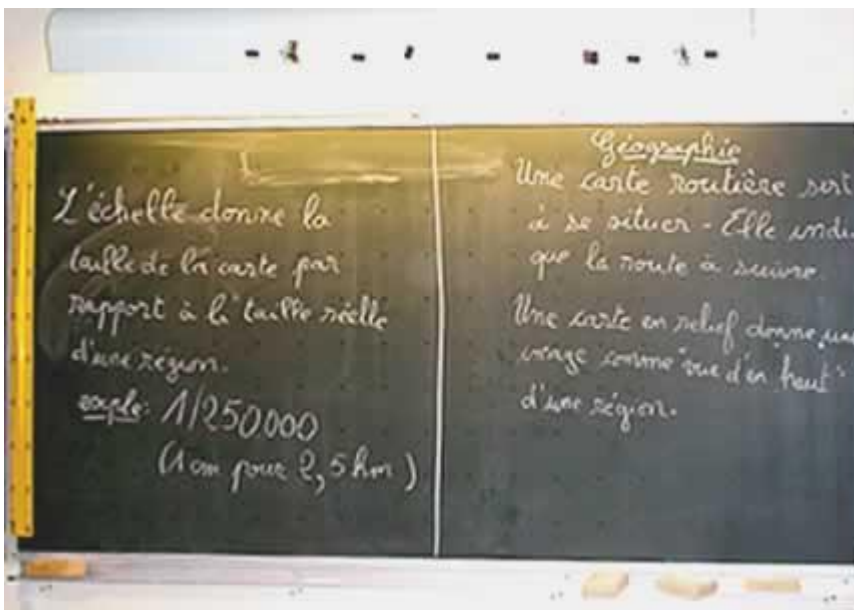 L'échelle donne la
taille de la carte par
rapport à la taille réelle
d'une région.
exple: 1/250.000
(1 cm pour 2,5 km)
Géographie
Une carte routière sert
à se situer - Elle indi
que la route à suivre
Une carte en relief donne une
image comme "vue d'en haut"
d'une région.